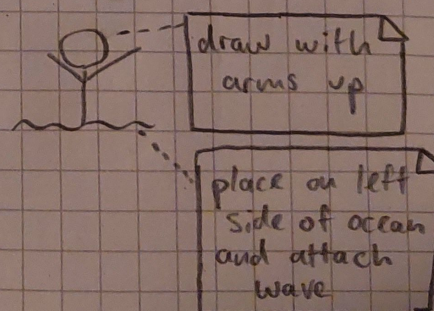 draw with
arms up
place on left
side of ocean
and attach
wave